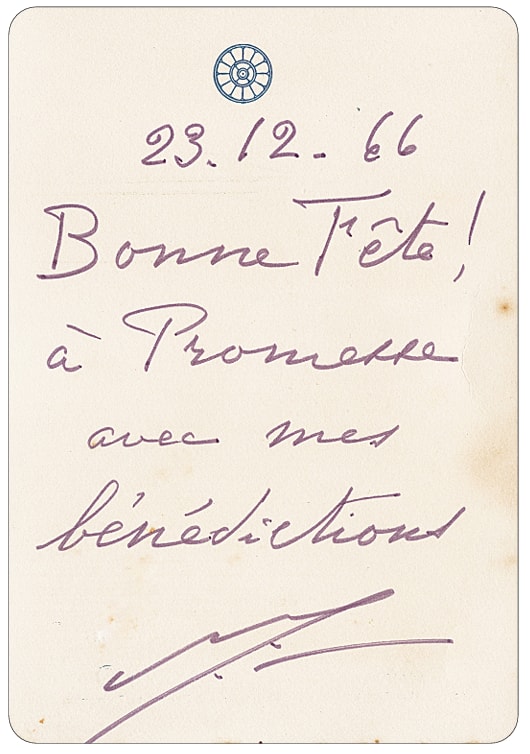 23.12.66
Bonne Fête!
à Promesse
avec mes
bénédictions